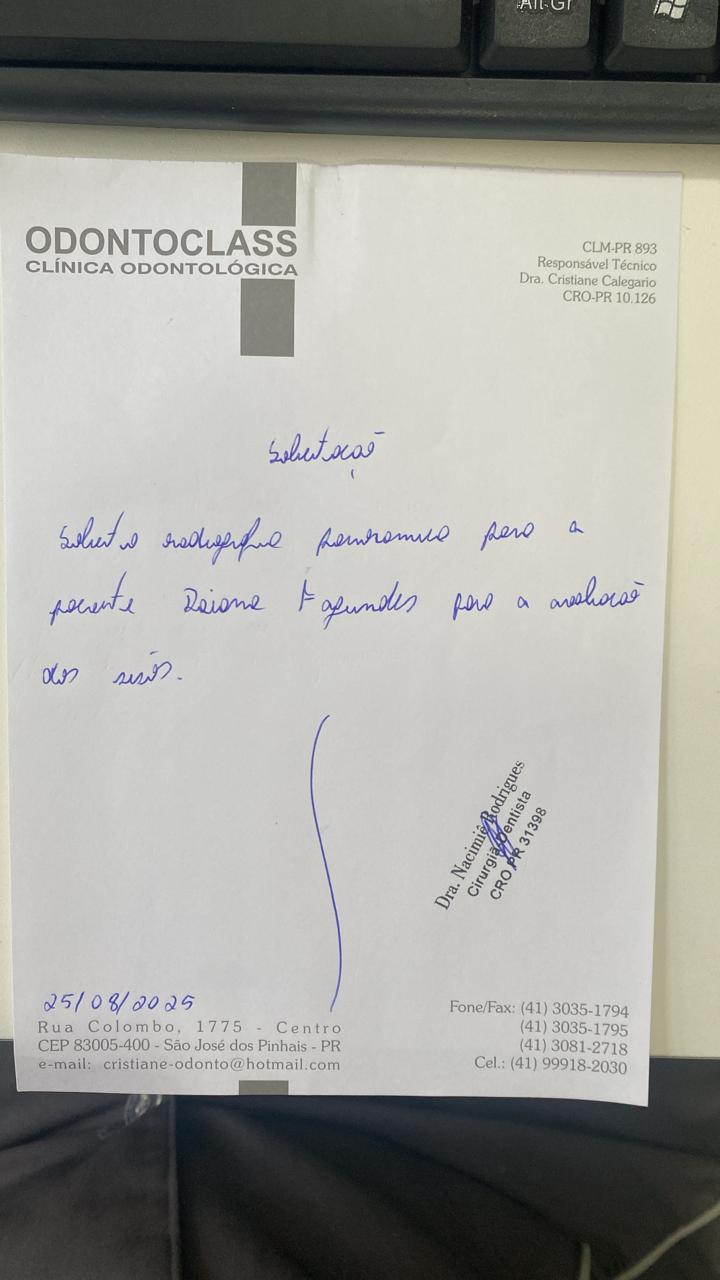 Alt Gr
ODONTOCLASS
CLÍNICA ODONTOLÓGICA
CLM-PR 893
Responsável Técnico
Dra. Cristiane Calegario
CRO-PR 10.126
Solicitação
Solicito radiografia panoramica para a
paciente Daiane Fagundes para a avaliação
dos sisos.
Dra. Nacimiê Rodrigues
Cirurgiã Dentista
CRO PR 31398
25/08/2025
Rua Colombo, 1775 - Centro
CEP 83005-400 - São José dos Pinhais - PR
e-mail: cristiane-odonto@hotmail.com
Fone/Fax: (41) 3035-1794
(41) 3035-1795
(41) 3081-2718
Cel.: (41) 99918-2030